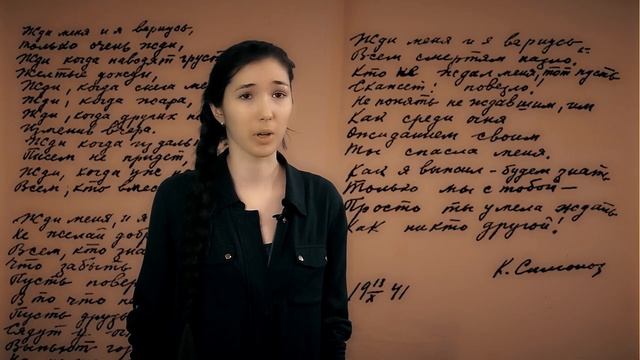 Жди меня и я вернусь,
только очень жди,
Жди когда наводят груст
Желтые дожди,
Жди, когда снега ме
Жди, когда жара,
Жди, когда других
Изменив вчера.
Жди когда из даль
Писем не придет,
Жди, когда уж
Всем, кто вмес
Жди меня, и я
Не желай добр
Всем, кто зна
Что забыть
Пусть повер
В то что не
Пусть друзь
Сядут у ог
Выпьют гор
Жди меня и я вернусь
Всем смертям назло.
Кто не ждал меня, тот пусть
Скажет: повезло!
Не понять не ждавшим, им
Как среди огня
Ожиданием своим
Ты спасла меня.
Как я выжил - будем знать
Только мы с тобой —
Просто ты умела ждать
Как никто другой!
К. Симонов
19 13/X 41